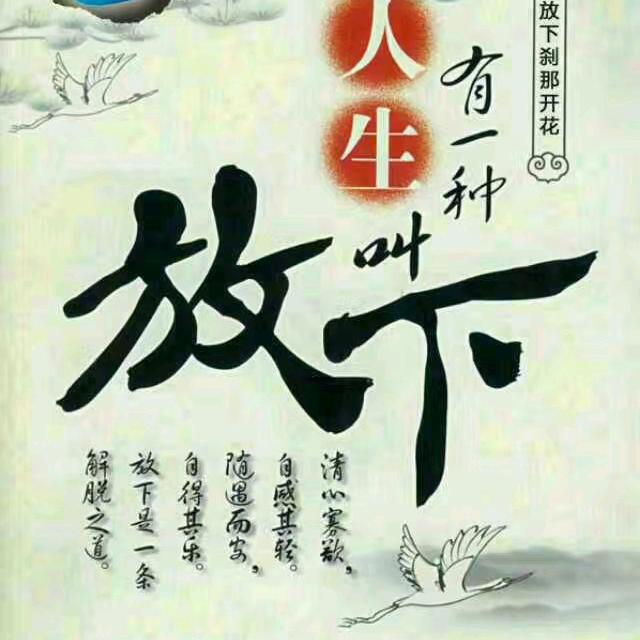 放下刹那开花
有一种
人生
叫
放下
清心寡欲，
自感其轻。
随遇而安，
自得其乐。
放下是一条
解脱之道。